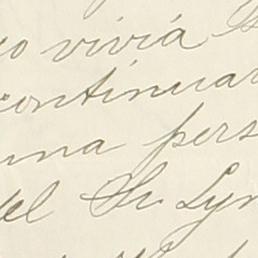 vivía
continuar
una pers
del Sr. Lyn